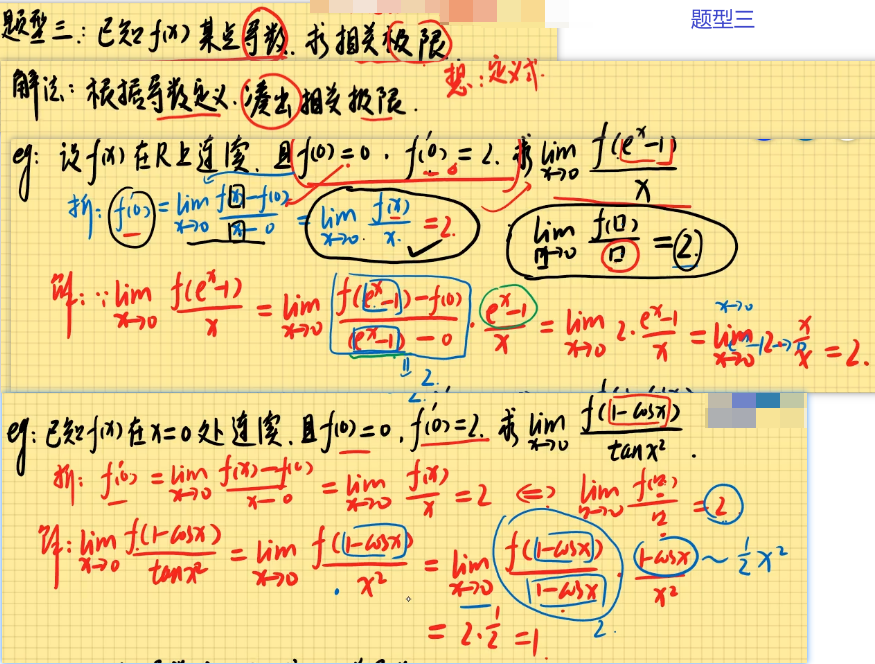 题型三
题型三:已知f(x)某点导数.求相关极限
解法:根据导数定义.凑出相关极限.
想:定义式.
eg:设f(x)在R上连续.且f(0)=0,f'(0)=2.求lim x→0 f(e^x-1)/x
析:f'(0)=lim x→0 f(x)-f(0)/x-0=lim x→0 f(x)/x=2.
lim □→0 f(□)/□=2
解:∵lim x→0 f(e^x-1)/x=lim x→0 f(e^x-1)-f(0)/(e^x-1)-0·e^x-1/x=lim x→0 2·e^x-1/x=lim x→0 2·x/x=2.
x→0
e^x-1→0
2.
eg:已知f(x)在x=0处连续.且f(0)=0,f'(0)=2.求lim x→0 f(1-cosx)/tanx².
析:f'(0)=lim x→0 f(x)-f(0)/x-0=lim x→0 f(x)/x=2⇔lim □→0 f(□)/□=2
解:lim x→0 f(1-cosx)/tanx²=lim x→0 f(1-cosx)/x²=lim x→0 f(1-cosx)/1-cosx·1-cosx/x²~1/2x²
2.
=2·1/2=1